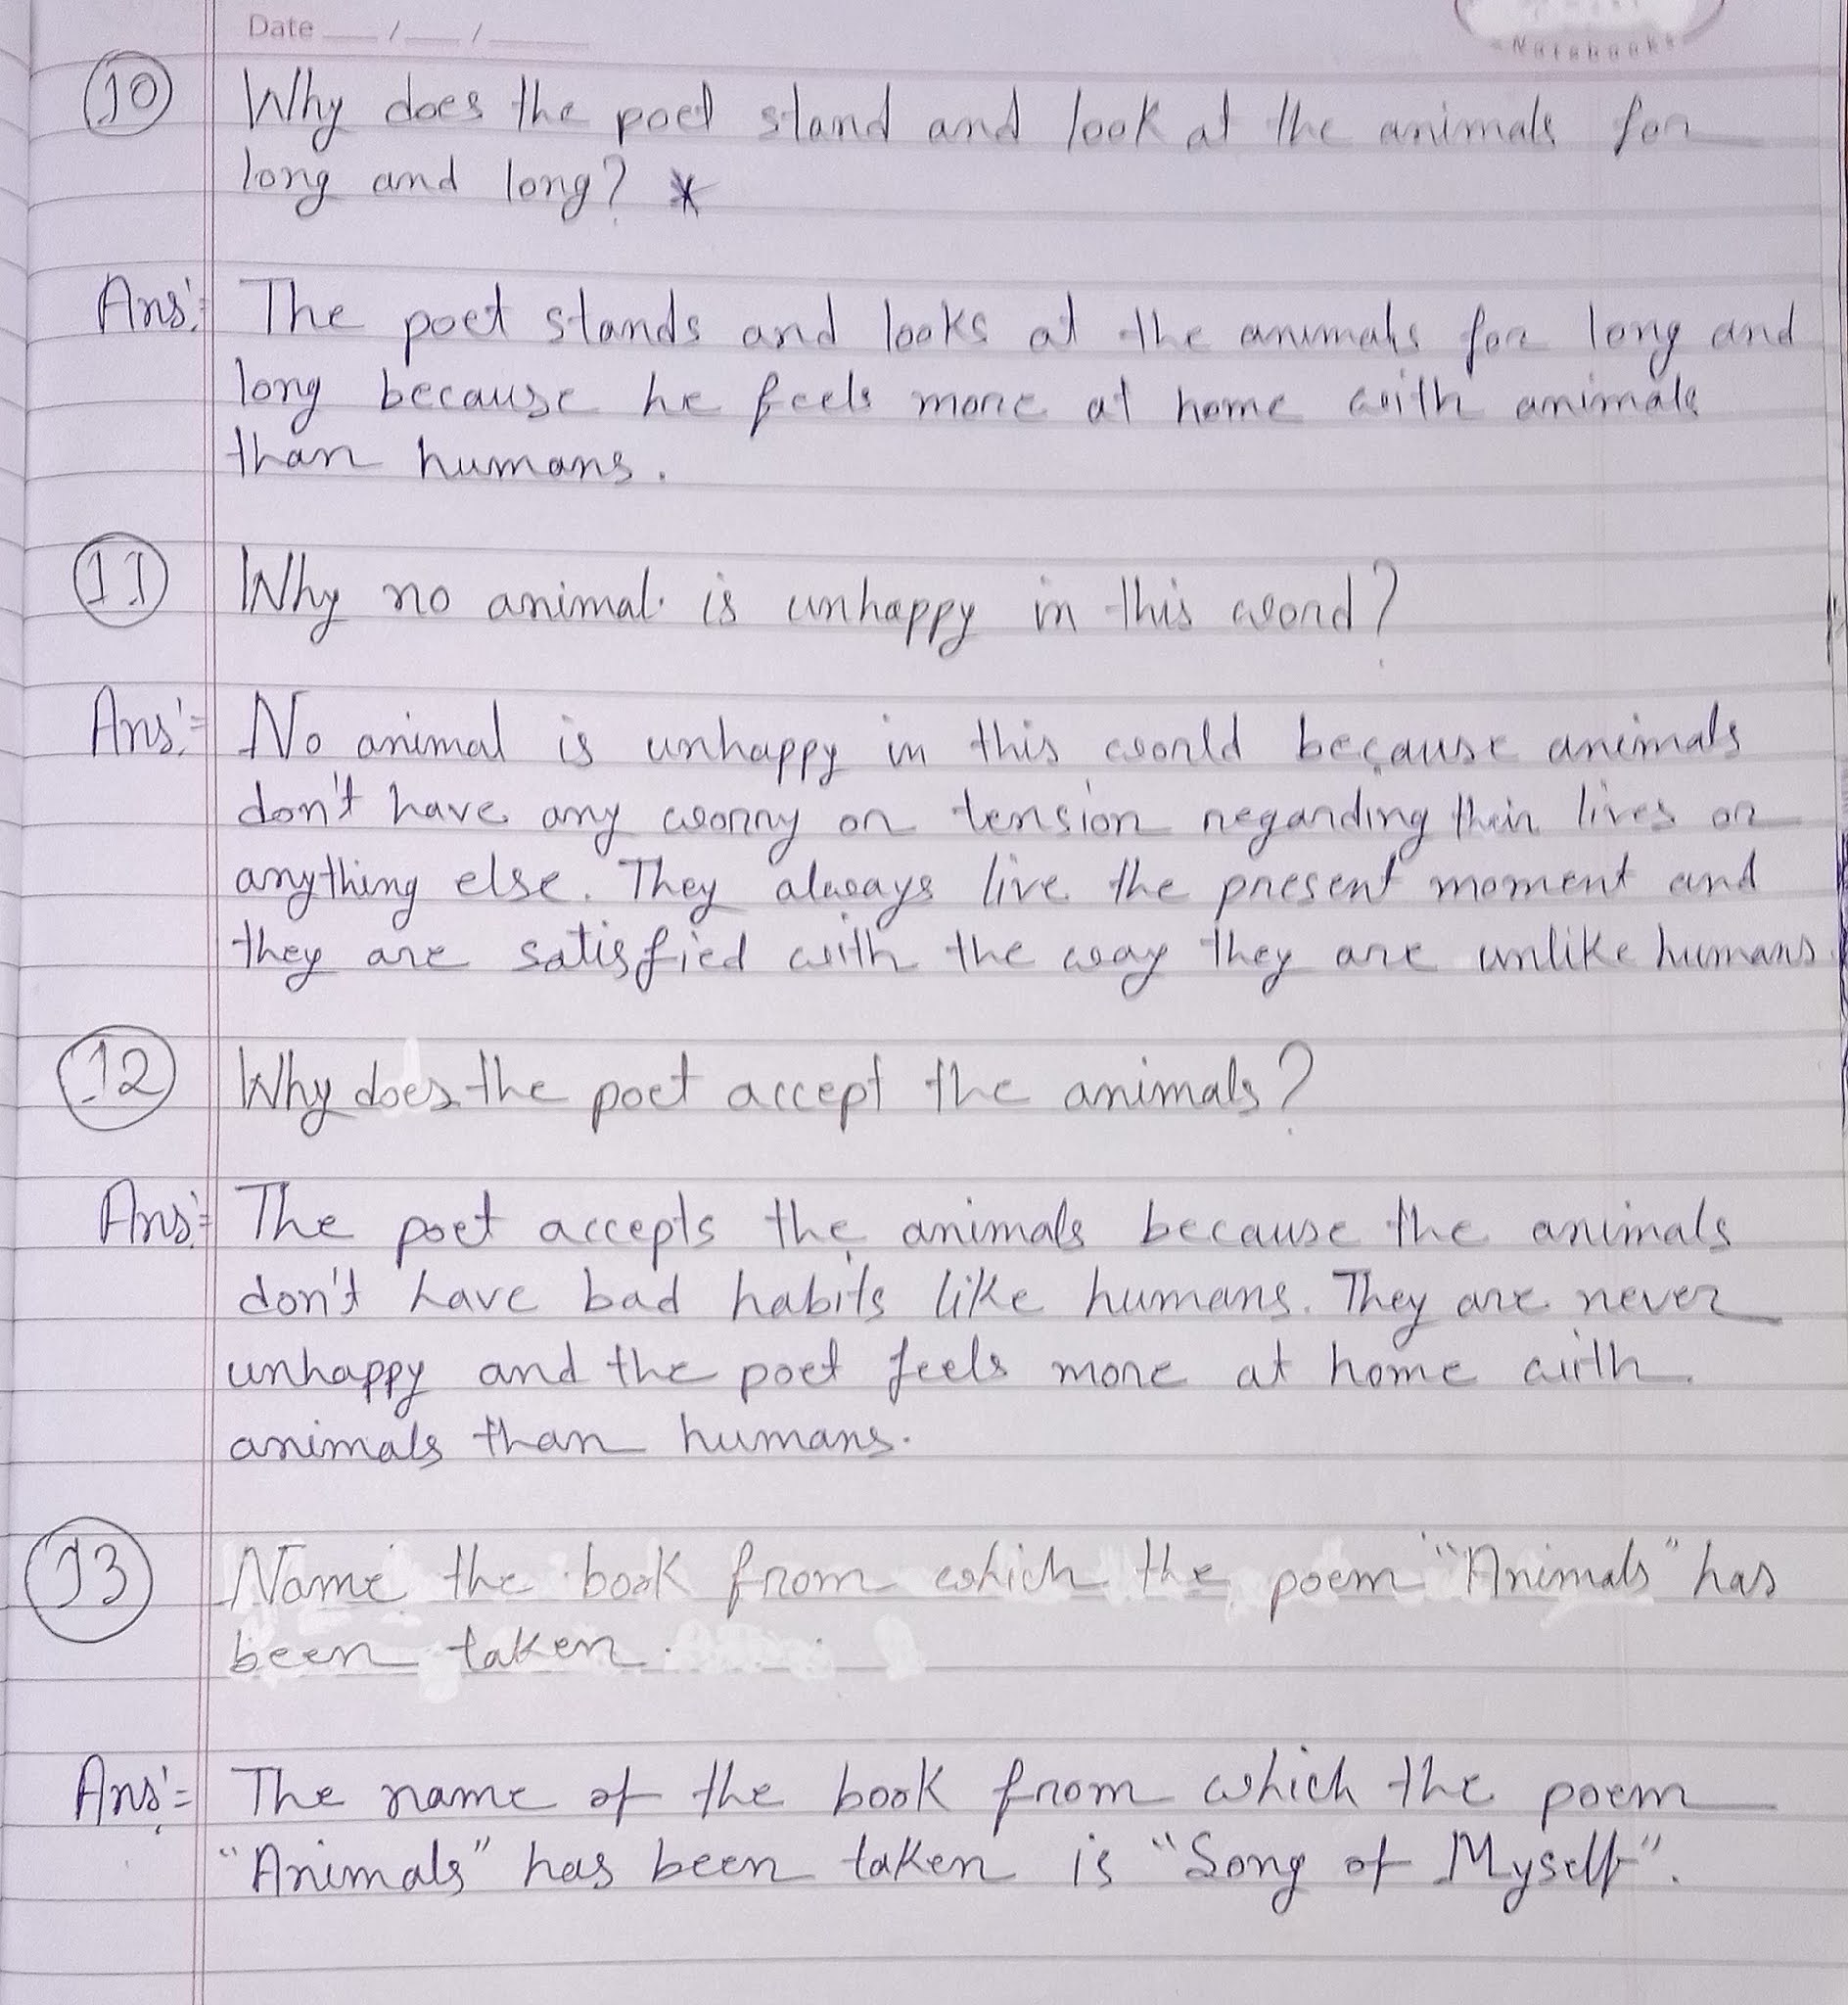 Date __/__/____
Notebooks
10 Why does the poet stand and look at the animals for
long and long? *
Ans:= The poet stands and looks at the animals for long and
long because he feels more at home with animals
than humans.
11 Why no animal is unhappy in this word?
Ans:= No animal is unhappy in this world because animals
don't have any worry or tension regarding their lives or
anything else. They always live the present moment and
they are satisfied with the way they are unlike humans.
12 Why does the poet accept the animals?
Ans:= The poet accepts the animals because the animals
don't have bad habits like humans. They are never
unhappy and the poet feels more at home with
animals than humans.
13 Name the book from which the poem "Animals" has
been taken.
Ans:= The name of the book from which the poem
"Animals" has been taken is "Song of Myself".